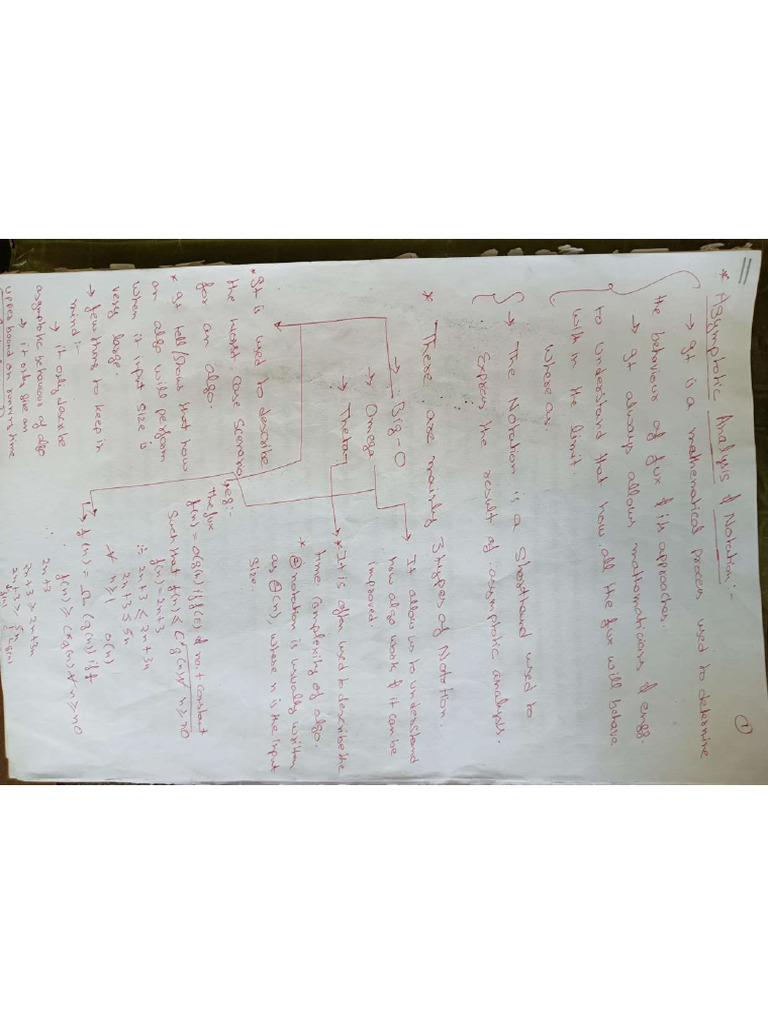 ①
* Asymptotic Analysis & Notation:-
→ It is a mathematical process used to determine
the behaviour of fux & its approaches.
→ It always allows mathematicians & engg.
to understand that how all the fux will behave
with in the limit.
where as
→ The Notation is a Shorthand used to
Express the result of asymptotic analysis.
* There are mainly 3 types of Notation.
→ Big-O
→ Omega
→ Theta
It allow us to understand
how algo work & it can be
improved.
* It is often used to describe the
time complexity of algo.
* Θ notation is usually written
as Θ(n), where n is the input
size
* It is used to describe
the Worst case Scenario
for an algo.
* It tell/show that how
an algo will perform
when it input size is
very large.
→ few thing to keep in
mind:-
→ it only describe
asymptotic behaviour of algo
→ it only give an
upper bound on running time
eg:-
The fux
f(n) = O(g(n)) iff c(0) & no + constant
Such that f(n) ≤ c*g(n) ∀ n ≥ n0
f(n) = 2n+3
is 2n+3 ≤ 2n+3n
2n+3 ≤ 5n
∀ n≥1 o(n)
→ f(n) = Ω(g(n)) iff
f(n) ≥ c*g(n) ∀ n ≥ n0
2n+3
2n+3 ≥ 2n+3n
2n+3 ≥ 5n